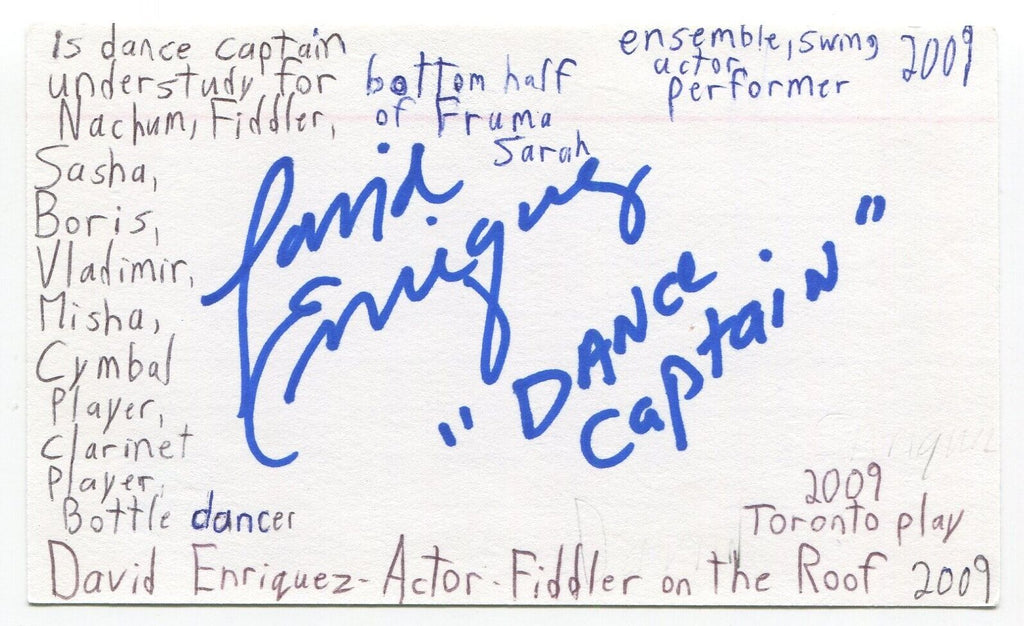 Is dance captain
understudy for bottom half
Nachum, Fiddler, of Fruma
Sarah
ensemble, swing 2009
actor
performer
Sasha,
Boris,
Vladimir,
Misha,
Cymbal
Player,
Clarinet
Player,
Bottle dancer
David
Enriquez
"DANCE
Captain"
2009
Toronto play
David Enriquez - Actor - Fiddler on the Roof 2009